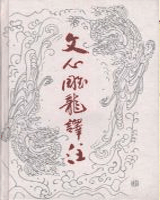 文心雕龍譯注